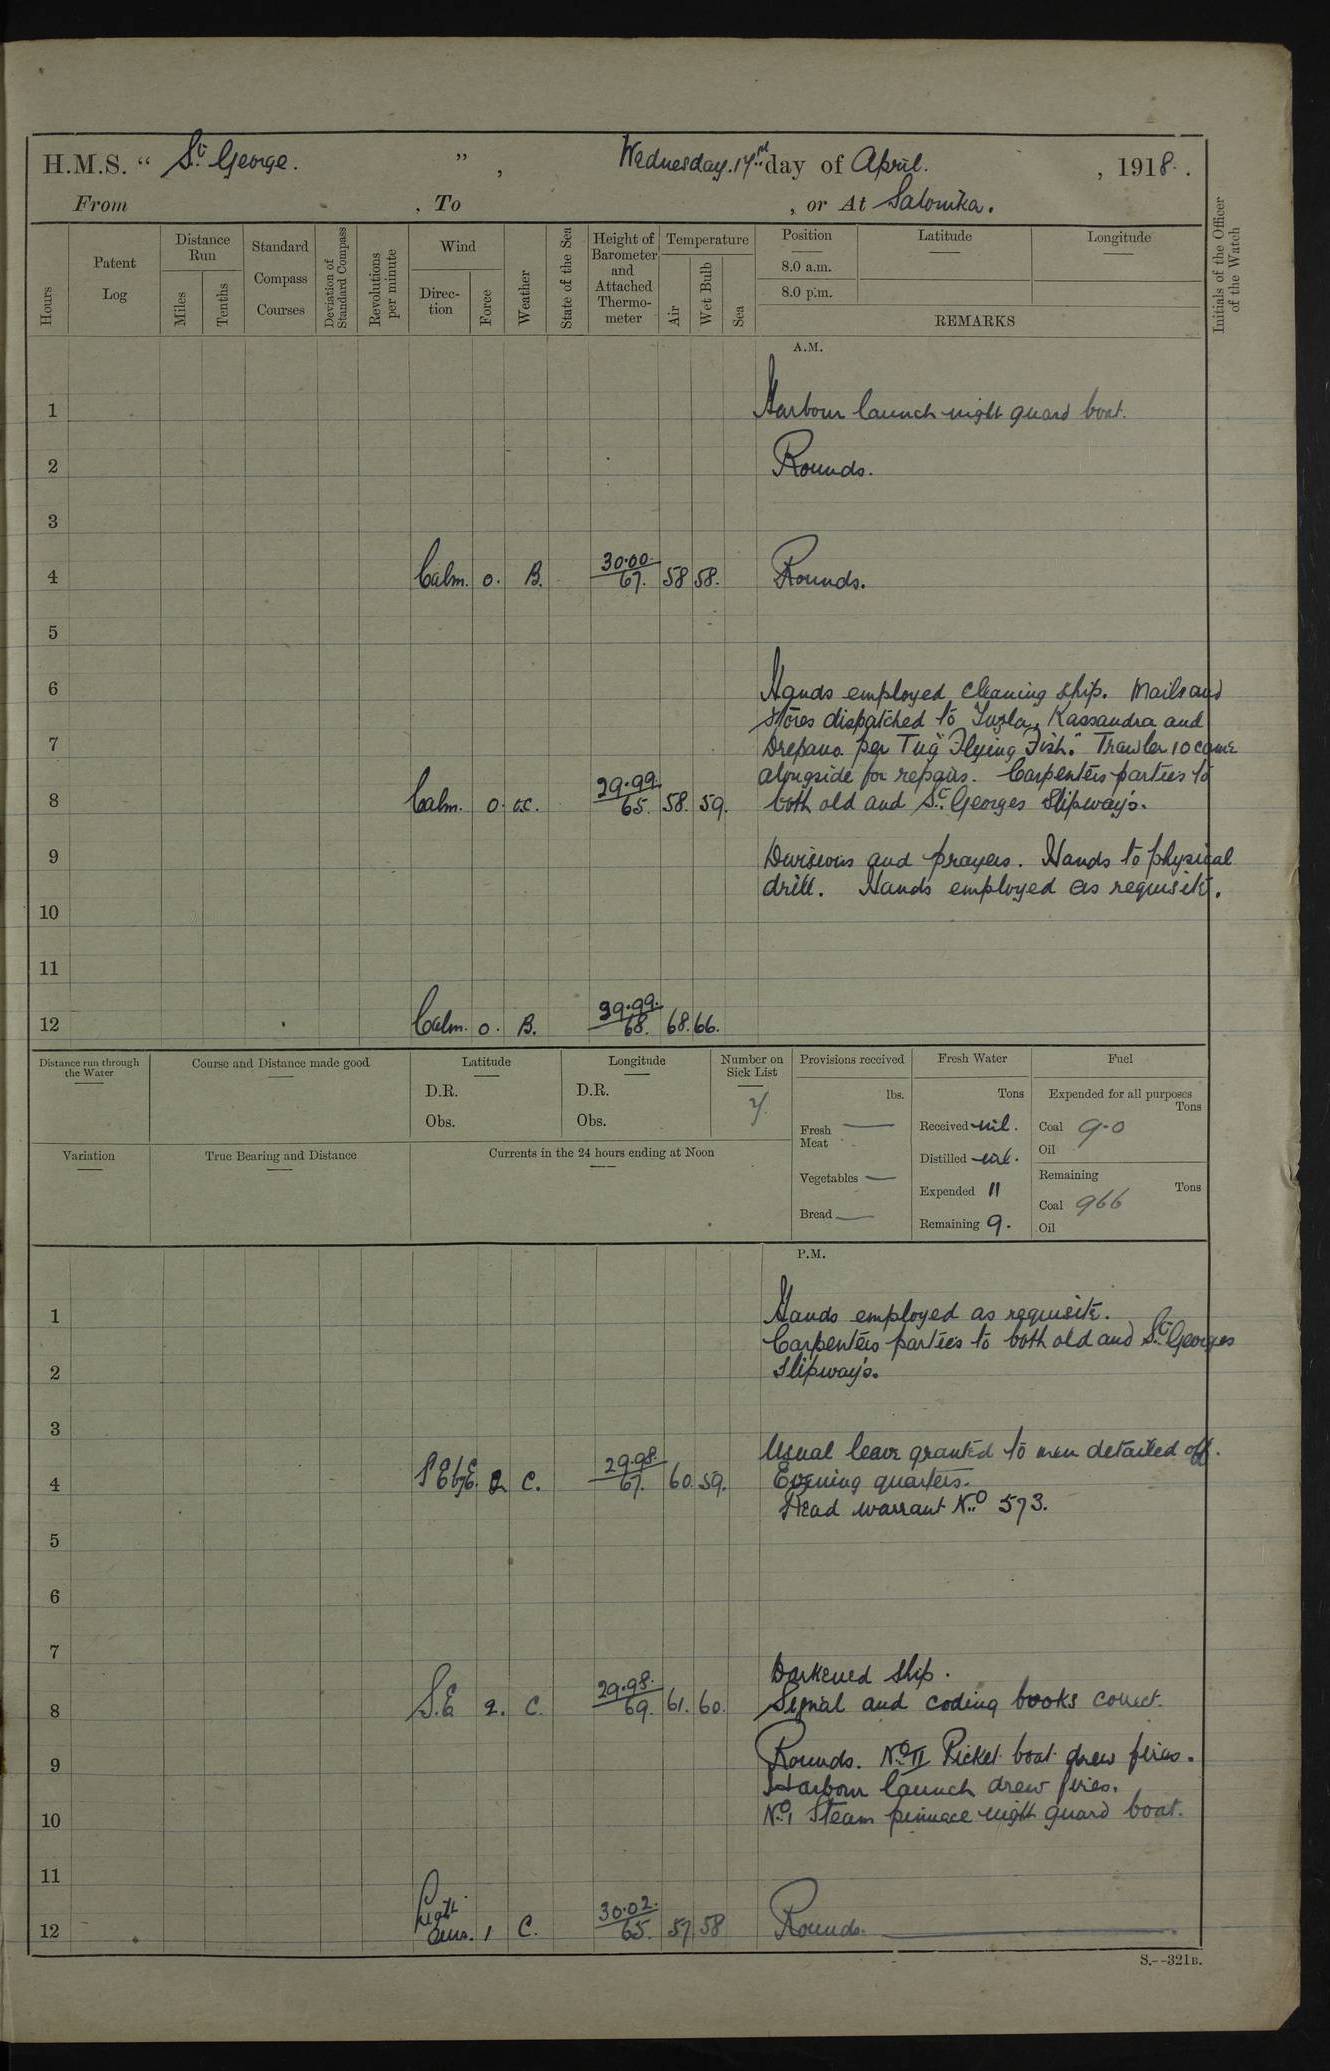 H.M.S. “ St. George. ” , Wednesday. 17rd day of April. , 1918.
From , To , or At Salonika.
Hours
Patent Log
Distance Run
Miles
Tenths
Standard Compass Courses
Deviation of Standard Compass
Revolutions per minute
Wind
Direc-tion
Force
Weather
State of the Sea
Height of Barometer and Attached Thermo-meter
Temperature
Air
Wet Bulb
Sea
Position
8.0 a.m.
8.0 p.m.
Latitude
Longitude
REMARKS
Initials of the Officer of the Watch
A.M.
1 Harbour launch night guard boat.
2 Rounds.
3
4 Calm. 0. B. 30.00. 67. 58 58. Rounds.
5
6 Hands employed cleaning ship. Mails and
stores dispatched to Tuzla, Kassandra and
7 Drepano. per Tug "Flying Fish." Trawler 10 came
alongside for repairs. Carpenters parties to
8 Calm. 0. o.c. 29.99. 65. 58. 59. both old and St. Georges Slipway's.
9 Divisions and prayers. Hands to physical
drill. Hands employed as requisite.
10
11
12 Calm. 0. B. 39.99. 68. 68. 66.
Distance run through the Water
Course and Distance made good
Latitude
D.R.
Obs.
Longitude
D.R.
Obs.
Number on Sick List
Provisions received
lbs.
Fresh Meat —
Vegetables —
Bread —
Fresh Water
Tons
Received nil.
Distilled nil.
Expended 11
Remaining 9.
Fuel
Expended for all purposes
Tons
Coal 9.0
Oil
Remaining
Tons
Coal 966
Oil
Variation
True Bearing and Distance
Currents in the 24 hours ending at Noon
P.M.
1 Hands employed as requisite.
Carpenters parties to both old and St. Georges
2 Slipway's.
3
Usual leave granted to men detailed off.
4 SEbyE. 2 C. 29.98. 67. 60. 59. Evening quarters.
Read warrant No. 573.
5
6
7
Darkened ship.
8 S.E 2. C. 29.98. 69. 61. 60. Signal and coding books correct.
9 Rounds. No. II Picket boat drew fires.
Harbour launch drew fires.
10 No. 1 Steam pinnace night guard boat.
11
12 Light airs. 1 C. 30.02. 65. 57 58 Rounds.
S.--321B.